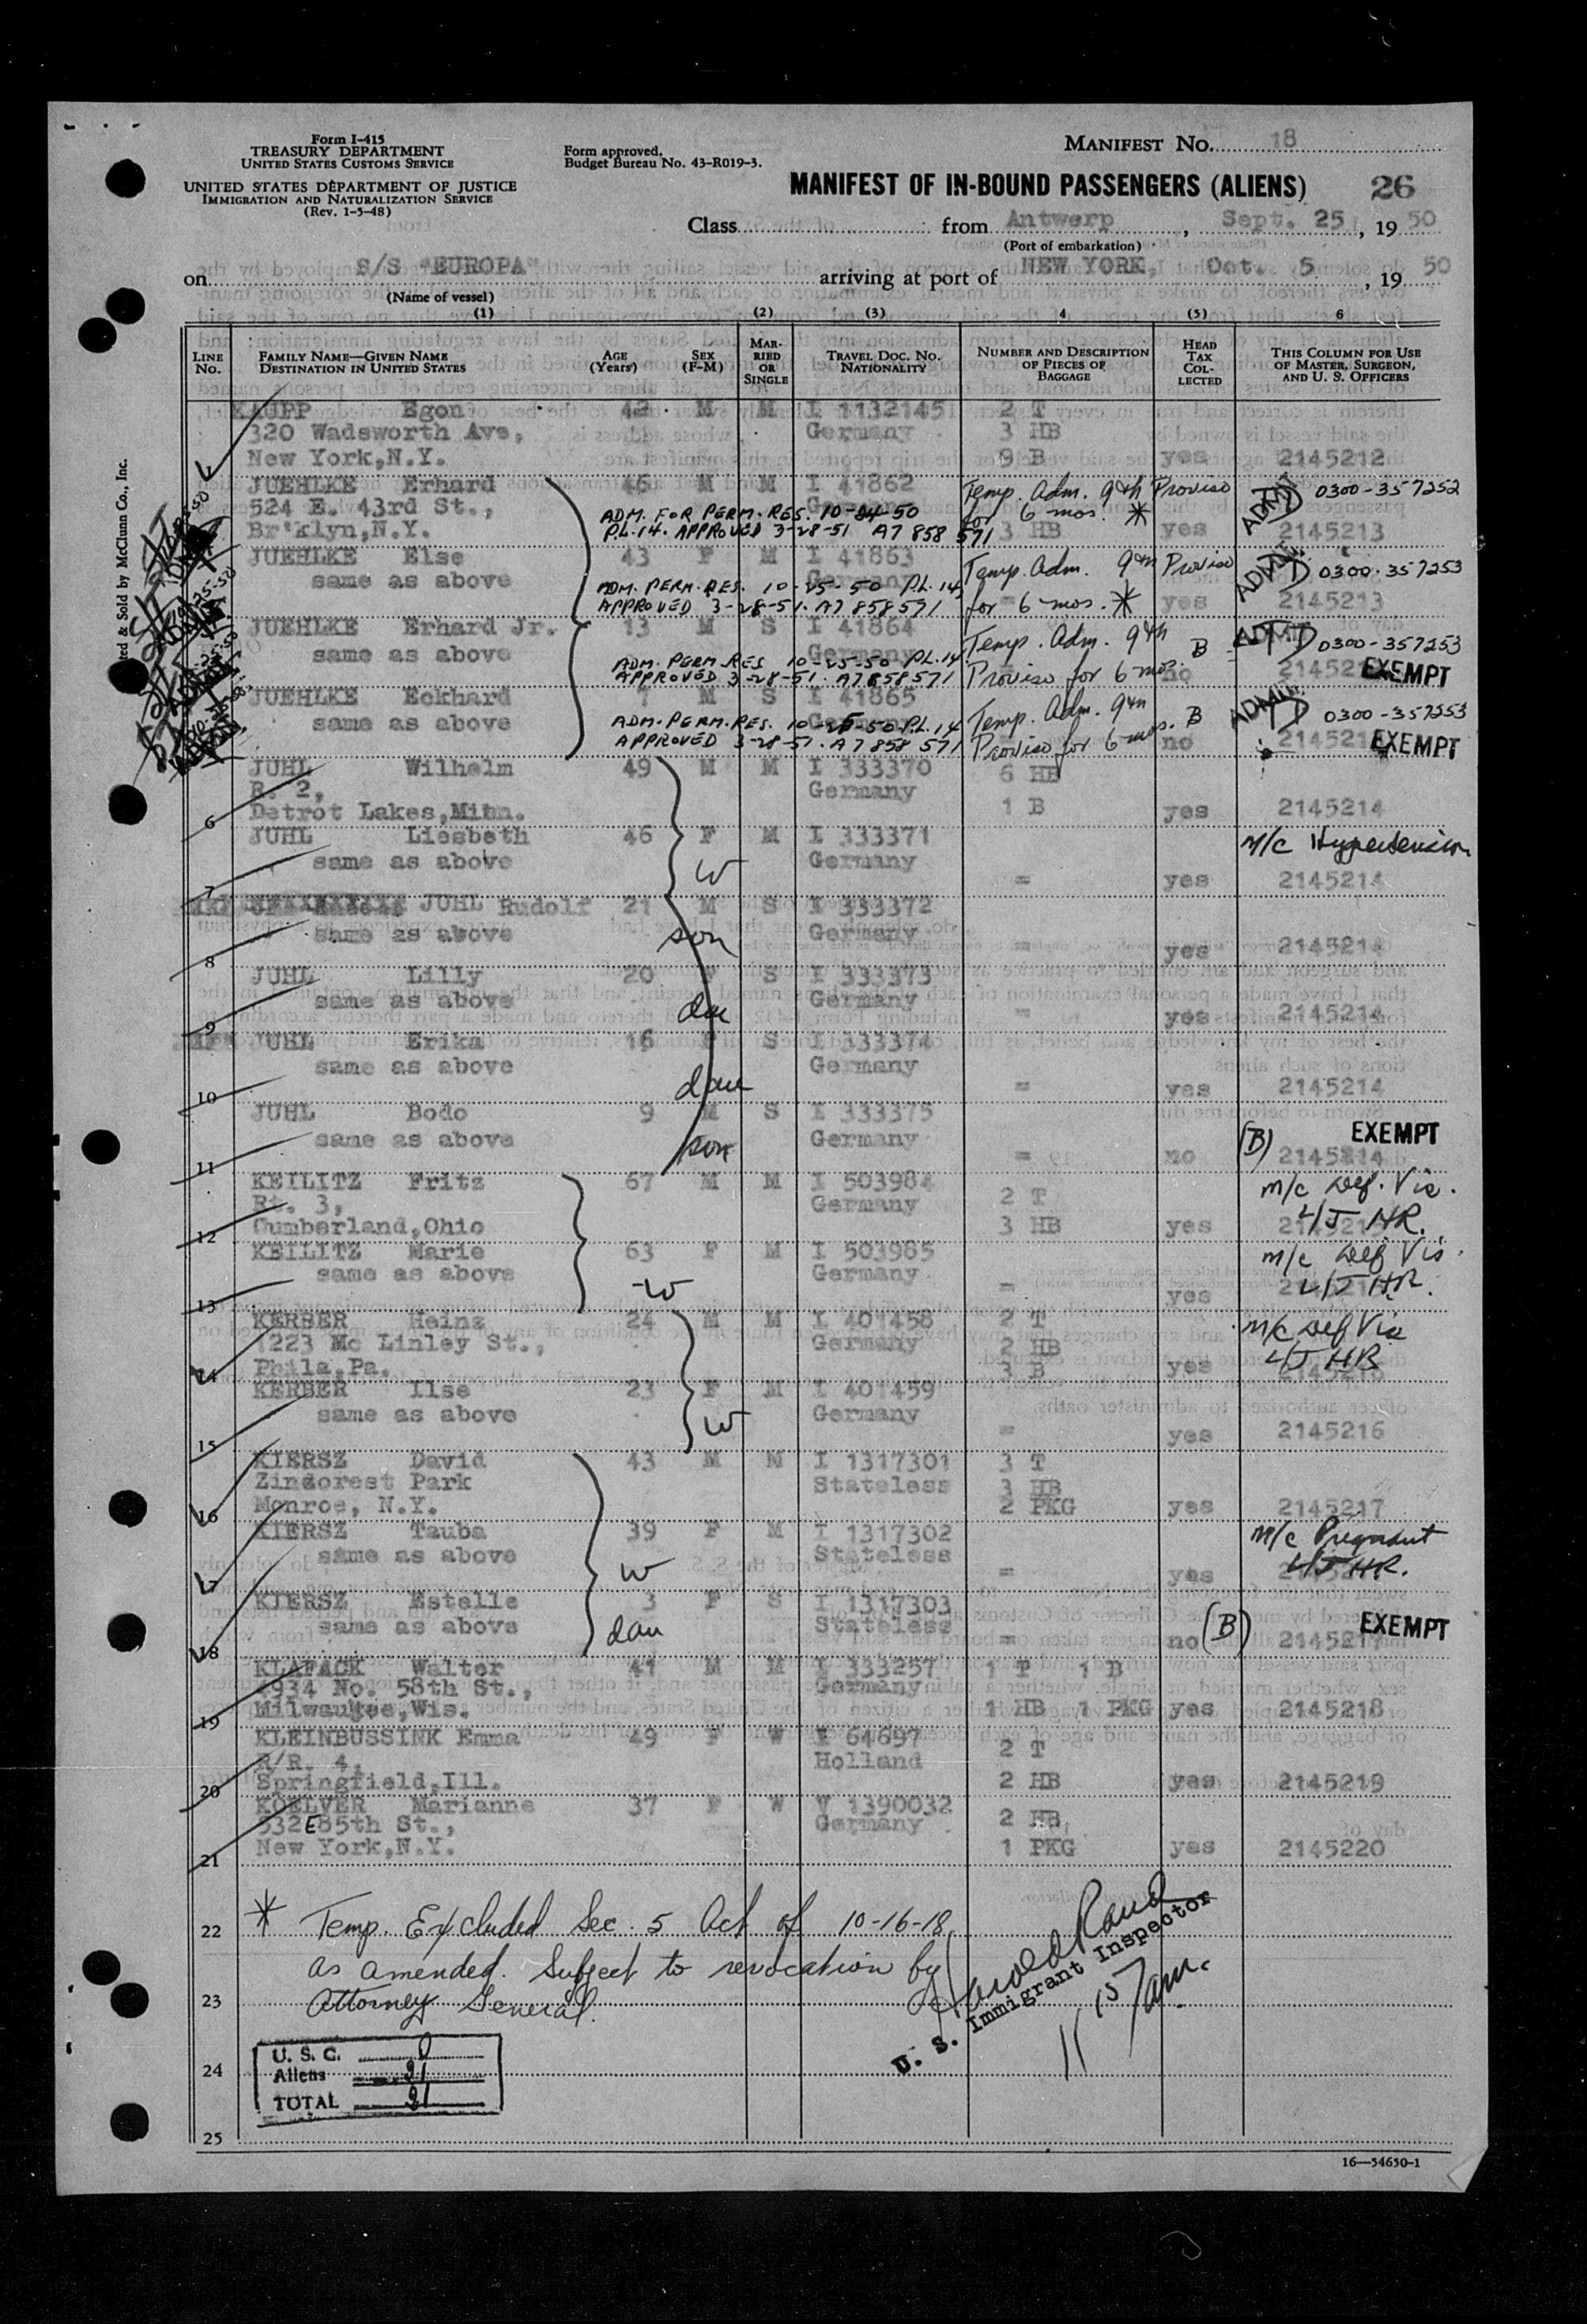 Form I-415
TREASURY DEPARTMENT
UNITED STATES CUSTOMS SERVICE
UNITED STATES DEPARTMENT OF JUSTICE
IMMIGRATION AND NATURALIZATION SERVICE
(Rev. 1-5-48)
Form approved.
Budget Bureau No. 43-R019-3.
MANIFEST NO. 18
MANIFEST OF IN-BOUND PASSENGERS (ALIENS) 26
Class from Antwerp, Sept. 25, 19 50
(Port of embarkation)
on S/S "EUROPA" arriving at port of NEW YORK, Oct. 5, 19 50
(Name of vessel)
(1) (2) (3) 4 (5) 6
LINE NO. FAMILY NAME—GIVEN NAME DESTINATION IN UNITED STATES AGE (Years) SEX (F-M) MARRIED OR SINGLE TRAVEL DOC. NO. NATIONALITY NUMBER AND DESCRIPTION OF PIECES OF BAGGAGE HEAD TAX COLLECTED THIS COLUMN FOR USE OF MASTER, SURGEON, AND U. S. OFFICERS
KAUPP Egon 42 M M I 1132145 2 T
320 Wadsworth Ave, Germany 3 HB
1 New York,N.Y. 9 B yes 2145212
JUEHLKE Erhard 46 M M I 41862 Temp. Adm. 9th Proviso ADMTD 0300-357252
524 E. 43rd St., Germany for 6 mos. *
ADM. FOR PERM. RES. 10-24-50
Br'klyn,N.Y. P.L.14. APPROVED 3-28-51 A7 858 571 3 HB yes 2145213
JUEHLKE Else 43 F M I 41863 Temp. Adm. 9th Proviso ADMTD 0300-357253
same as above Germany
ADM. PERM. RES. 10-25-50 P.L.14
APPROVED 3-28-51. A7 858571 for 6 mos. * yes 2145213
JUEHLKE Erhard Jr. 13 M S I 41864 Temp. Adm. 9th B ADMTD 0300-357253
same as above Germany
ADM. PERM RES 10-25-50 P.L.14 Proviso for 6 mos.
APPROVED 3-28-51. A7858571 no EXEMPT
JUEHLKE Eckhard 7 M S I 41865 Temp. Adm. 9th B ADMTD 0300-357253
same as above Germany
ADM. PERM. RES. 10-25-50 P.L.14 Proviso for 6 mos.
APPROVED 3-28-51. A7 858 571 no EXEMPT
JUHL Wilhelm 49 M M I 333370 6 HB
R. 2, Germany
6 Detrot Lakes,Minn. 1 B yes 2145214
JUHL Liesbeth 46 F M I 333371 M/c Hypertension
same as above W Germany
7 = yes 2145214
JUHL Rudolf 21 M S I 333372
same as above son Germany
8 = yes 2145214
JUHL Lilly 20 F S I 333373
same as above dau Germany
9 = yes 2145214
JUHL Erika 16 F S I 333374
same as above Germany
10 dau = yes 2145214
JUHL Bodo 9 M S I 333375
same as above son Germany (B) EXEMPT
11 = no 2145214
KEILITZ Fritz 67 M M I 503984 2 T m/c Def. Vis.
Rt. 3, Germany
12 Cumberland,Ohio 3 HB yes L/J HR.
KEILITZ Marie 63 F M I 503985 m/c Def Vis.
same as above Germany
13 W = yes L/J HR.
KERBER Heinz 24 M M I 401458 2 T m/c Def Vis
1223 Mc Linley St., Germany 2 HB
14 Phila,Pa. 3 B yes L/J HR
KERBER Ilse 23 F M I 401459
same as above W Germany
15 = yes 2145216
KIERSZ David 43 M N I 1317301 3 T
Zindorest Park Stateless 3 HB
16 Monroe, N.Y. 2 PKG yes 2145217
KIERSZ Tauba 39 F M I 1317302 m/c Pregnant
same as above Stateless
17 W = yes L/J HR.
KIERSZ Estelle 3 F S I 1317303
same as above dau Stateless EXEMPT
18 = no (B) 2145217
KLAFACK Walter 41 M M I 333257 1 T 1 B
4934 No. 58th St., Germany
19 Milwaukee,Wis. 1 HB 1 PKG yes 2145218
KLEINBUSSINK Emma 49 F W I 64697 2 T
R/R. 4, Holland
20 Springfield,Ill. 2 HB yes 2145219
KOELVER Marianne 37 F W V 1390032 2 HB
532 E 85th St., Germany
21 New York,N.Y. 1 PKG yes 2145220
22 * Temp. Excluded Sec. 5 Act of 10-16-18
as amended. Subject to revocation by
23 Attorney General.
Harold Rand
U. S. Immigrant Inspector
11 15 am.
U. S. C. 0
24 Aliens 21
TOTAL 21
25
16—54650-1
& Sold by McClunn Co., Inc.